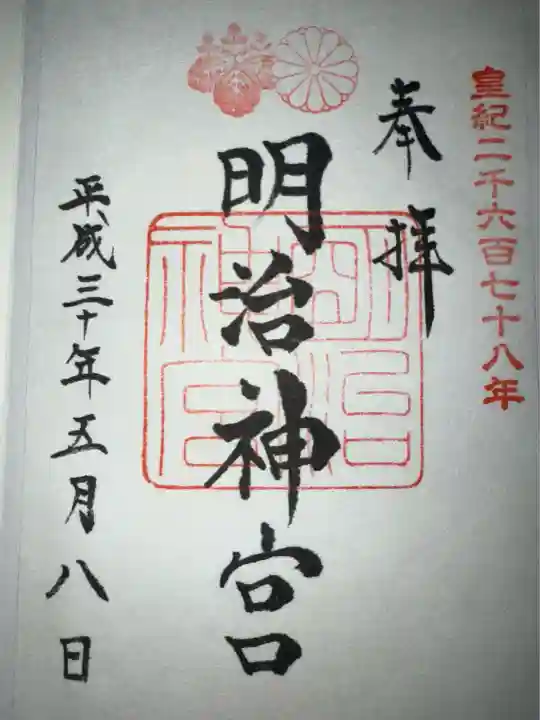 皇紀二千六百七十八年
奉拝
明治神宮
明治神宮
平成三十年五月八日